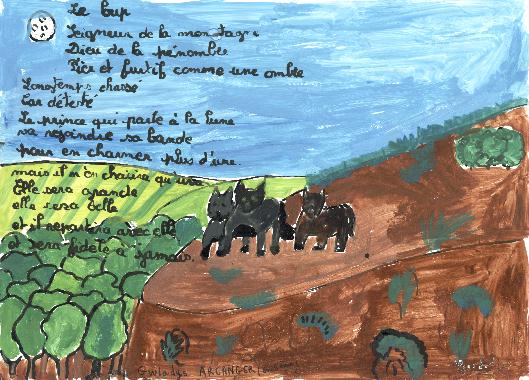 Le loup
Seigneur de la montagne
Dieu de la pénombre
Fier et furtif comme une ombre
Longtemps chassé
Car détesté
Le prince qui parle à la lune
va rejoindre sa bande
pour en charmer plus d'une.
mais il n'en choisira qu'une
Elle sera grande
elle sera belle
et il repartira avec elle
et sera fidèle à jamais.
Gwladys ARCANGER